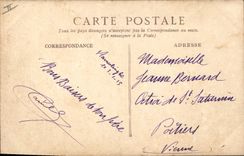 CARTE POSTALE
Tous les pays étrangers n'acceptent pas la Correspondance au recto.
(Se renseigner à la Poste)
CORRESPONDANCE
ADRESSE
Bons Baisers de ton père
Mademoiselle
Jeanne Bernard
de St
Poitiers
Vienne